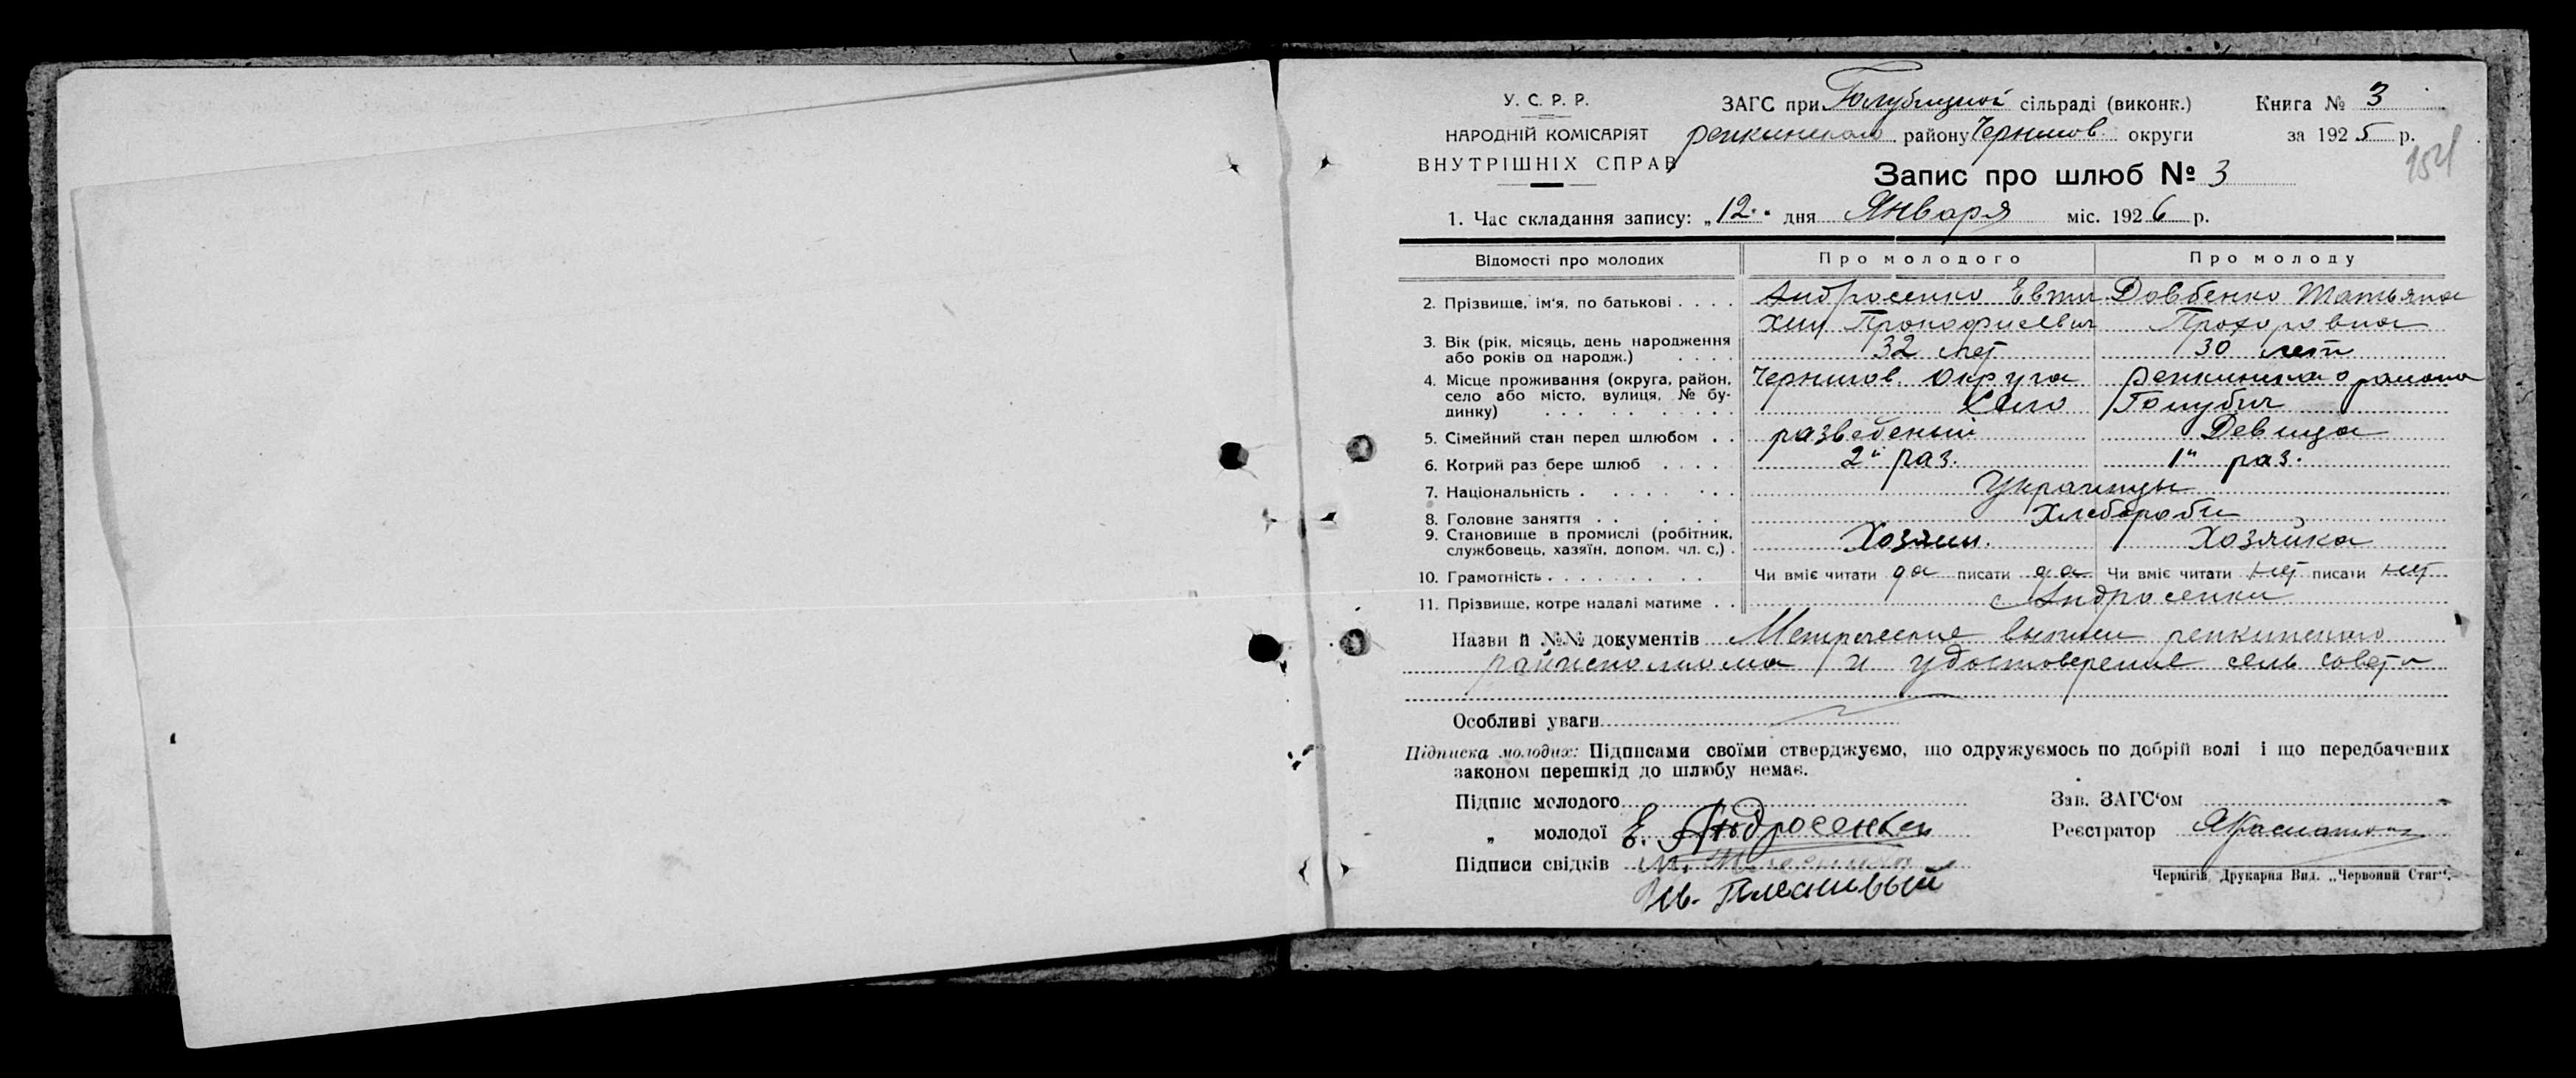 У. С. Р. Р.
НАРОДНІЙ КОМІСАРІЯТ
ВНУТРІШНІХ СПРАВ
ЗАГС при Голубицкой сільраді (виконк.)
репкинского району Чернигов. округи
Книга № 3
за 1925 р.
154
Запис про шлюб № 3
1. Час складання запису: „12“ дня Января міс. 1926 р.
Відомості про молодих Про молодого Про молоду
2. Прізвище, ім'я, по батькові . . . . Андросенко Евти- Довбенко Татьяна
хий Прокофиевич Прохоровна
3. Вік (рік, місяць, день народження
або років од народж.) . . . . 32 лет 30 лет
4. Місце проживання (округа, район, Чернигов. Округа репкинского района
село або місто, вулиця, № бу-
динку) . . . . . . . . . Село Голубич
5. Сімейний стан перед шлюбом . . разведеный Девица
6. Котрий раз бере шлюб . . . . 2й раз. 1й раз.
7. Національність . . . . . . . . Украинцы
8. Головне заняття . . . . . . Хлебороби
9. Становище в промислі (робітник,
службовець, хазяїн, допом. чл. с.) . Хозяин. Хозяйка
10. Грамотність . . . . . . . . . Чи вміє читати да писати да Чи вміє читати нет писати нет
11. Прізвище, котре надалі матиме . . Андросенки
Назви й №№ документів Метрические выписи репкинского
райисполкома и удостоверение сель совета
Особливі уваги
Підписка молодих: Підписами своїми стверджуємо, що одружуємось по добрій волі і що передбачених
законом перешкід до шлюбу немає.
Підпис молодого
„ молодої Е. Андросенко
Підписи свідків
Ив. Плешивый
Зав. ЗАГС‘ом
Реєстратор
Чернігів, Друкарня Вид. „Червоний Стяг“.